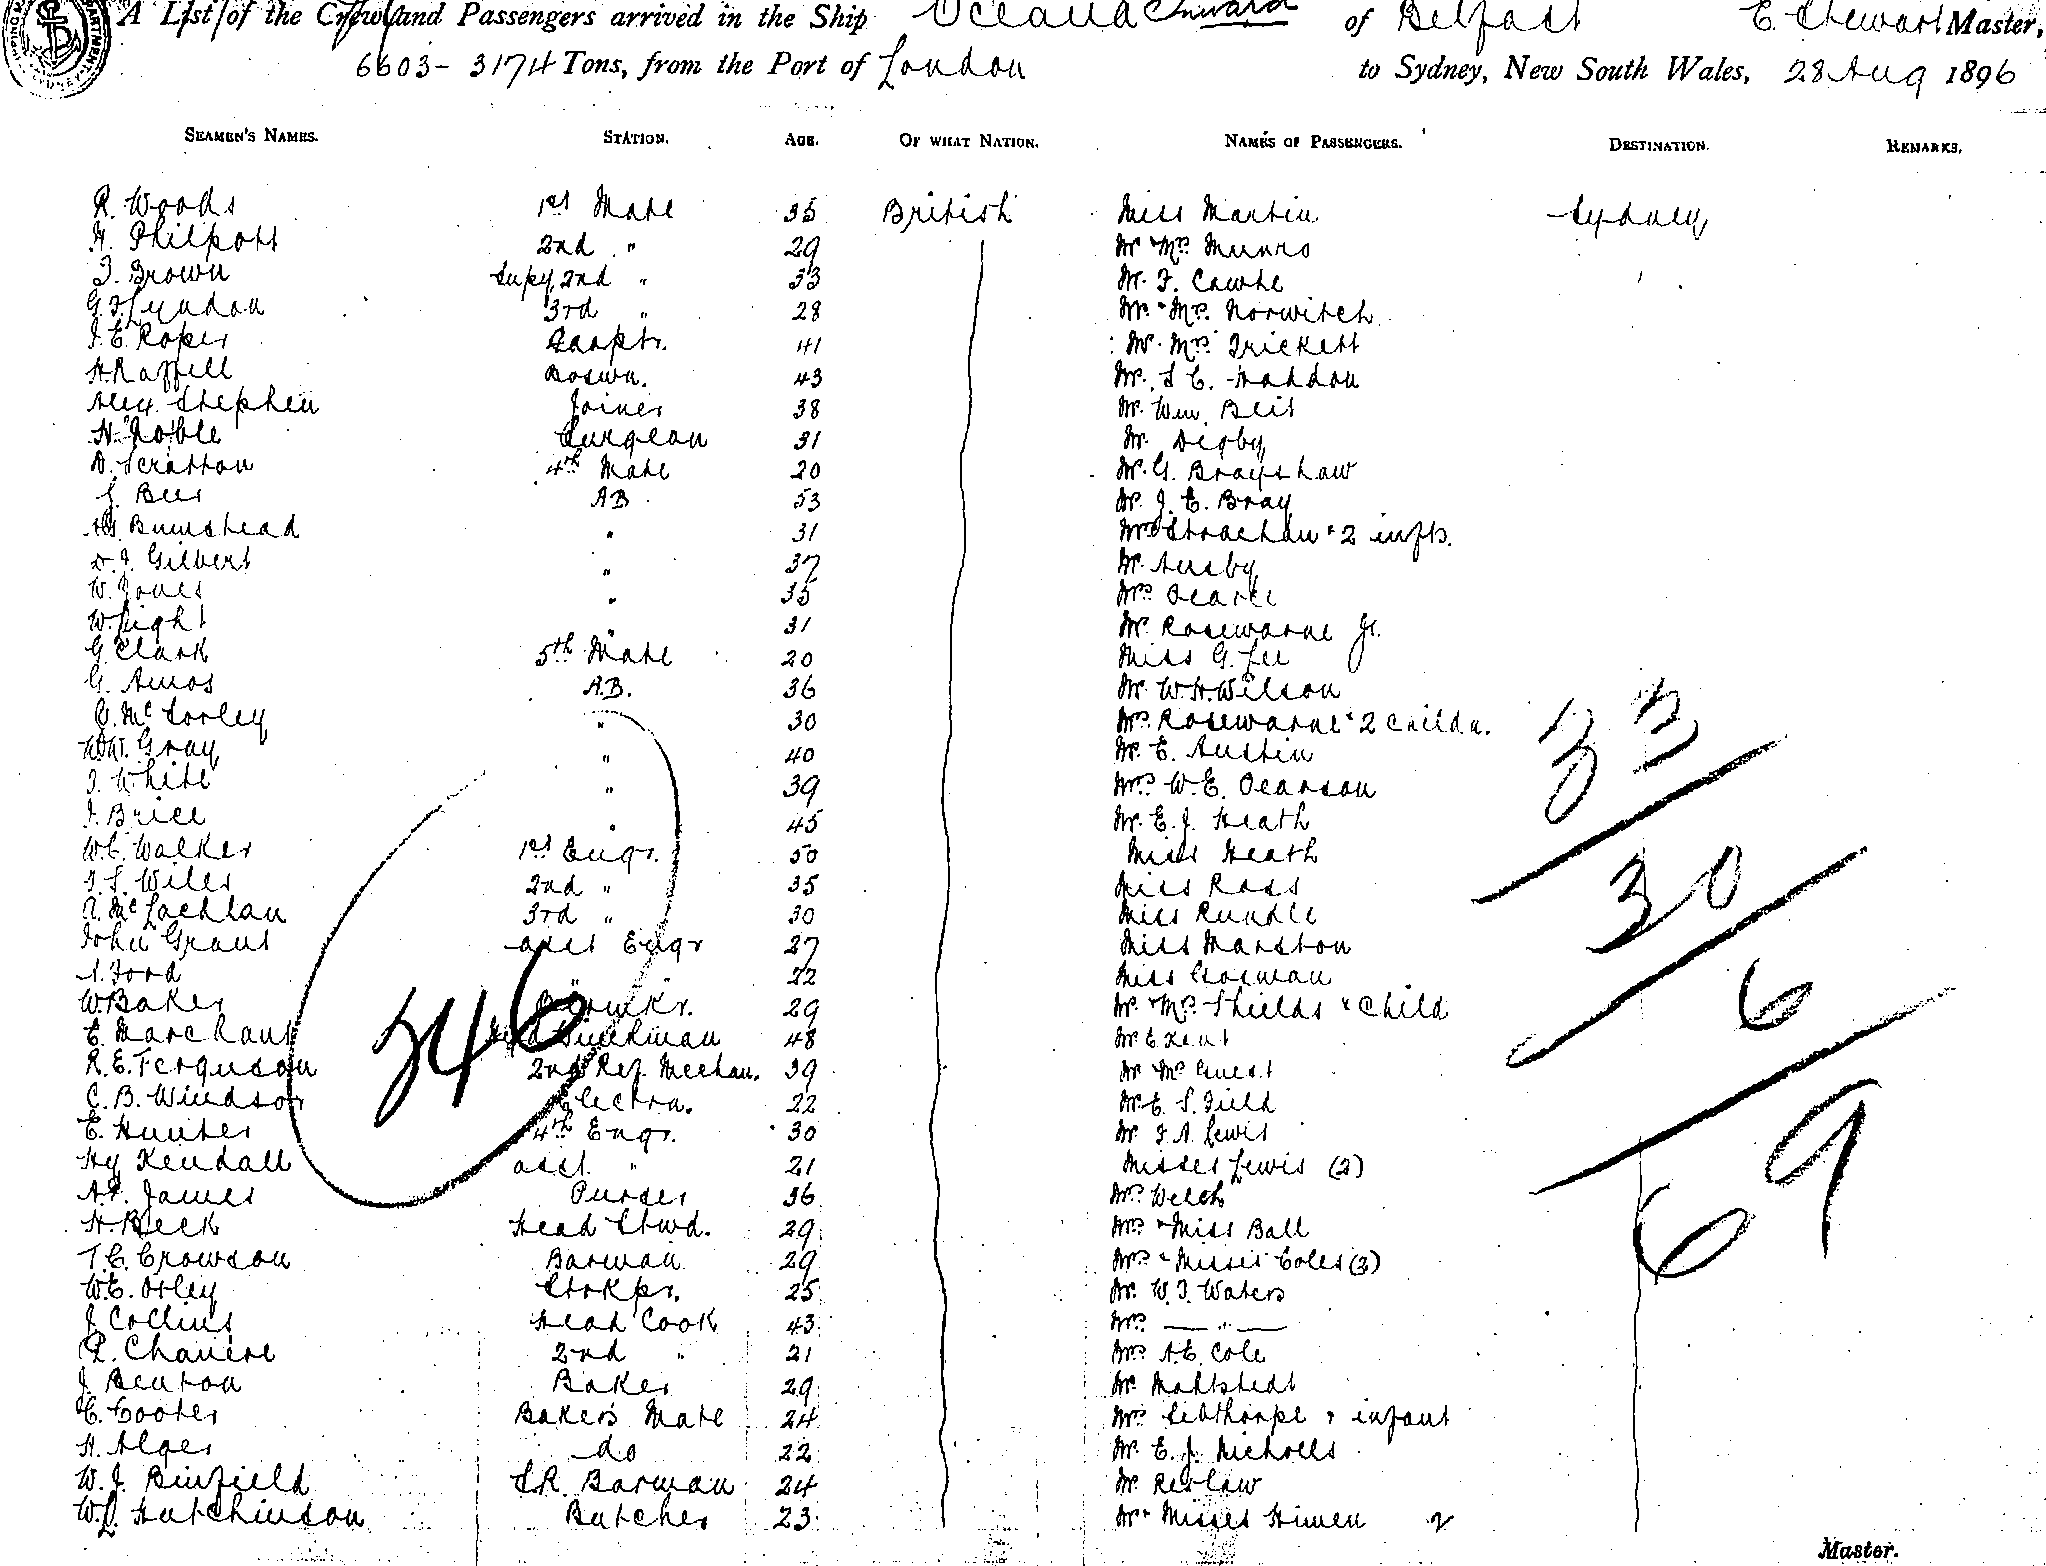 A List of the Crew and Passengers arrived in the Ship Oceana Inward of Belfast E. Stewart Master,
6603 - 3174 Tons, from the Port of London to Sydney, New South Wales, 28 Aug 1896
SEAMEN'S NAMES. STATION. AGE. OF WHAT NATION. NAMES OF PASSENGERS. DESTINATION. REMARKS.
R. Woods 1st Mate 35 British Miss Martin Sydney
H. Philpott 2nd " 29 Mr Mrs Munro
J. Brown Supy 2nd " 33 Mr. F. Cawhe
G.F. Lyndon 3rd " 28 Mr. & Mrs. Norwitch
J. E. Roper Carptr. 41 Mr. Mrs Trickett
H. Raffell Boswn. 43 Mr. S C. Haddon
Alex. Stephen Joiner 38 Mr. Wm. Beit
H. Noble Surgeon 31 Mr. Digby
D. Scratton 4th Mate 20 Mr. G. Brayshaw
J. Bees AB 53 Mr. J. E. Bray
Bumstead " 31 Mrs Strachan & 2 infts.
D. J. Gilbert " 37 Mr. Ausby
W. Jones " 35 Mrs Pearce
W. Light " 31 Mr. Rosewarne Jr.
G. Clark 5th Mate 20 Miss G. Lee
G. Amos A.B. 36 Mr. W. H. Wilson
C. McSorley " 30 Mrs. Rosewarne & 2 Childn.
Wm. Gray " 40 Mr. E. Austin
J. White " 39 Mrs W. E. Pearson
J. Brice " 45 Mr. E. J. Heath
W.C. Walker 1st Engr. 50 Miss Heath
J. S. Wiles 2nd " 35 Miss Ross
A. McLachlan 3rd " 30 Miss Rundle
John Grant asst Engr 27 Miss Marston
A. Ford " 22 Miss Gorman
W. Baker Brmkr. 29 Mr. & Mrs. Shields & Child
E. Marchant Winchman 48 Mr E Kent
R. E. Ferguson 2nd Ref. Mechan. 39 Mr Mrs Guest
C. B. Windsor Electrn. 22 Mr E. S. Field
E. Hunter 4th Engr. 30 Mr J. A. Lewis
Hy Kendall asst. " 21 Misses Lewis (2)
A. P. James Purser 36 Mrs Welch
H. Beck Head Stwd. 29 Mrs & Miss Ball
T. C. Crowson Barman 29 Mrs & Misses Coles (3)
W. E. Orley Storkpr. 25 Mr. W. J. Waters
J Collins Head Cook 43 Mrs — " —
P. Chaniere 2nd " 21 Mrs A. E. Cole
J. Benton Baker 29 Mr Mattstedt
C. Cooter Baker's Mate 24 Mrs Sibthorpe & infant
H. Alger do 22 Mr. E. J. Nicholls
W. J. Binfield S.R. Barman 24 Mr. Reslaw
W. L. Hutchinson Butcher 23 Mr & Misses Himen 2
346
33
30
6
69
Master.